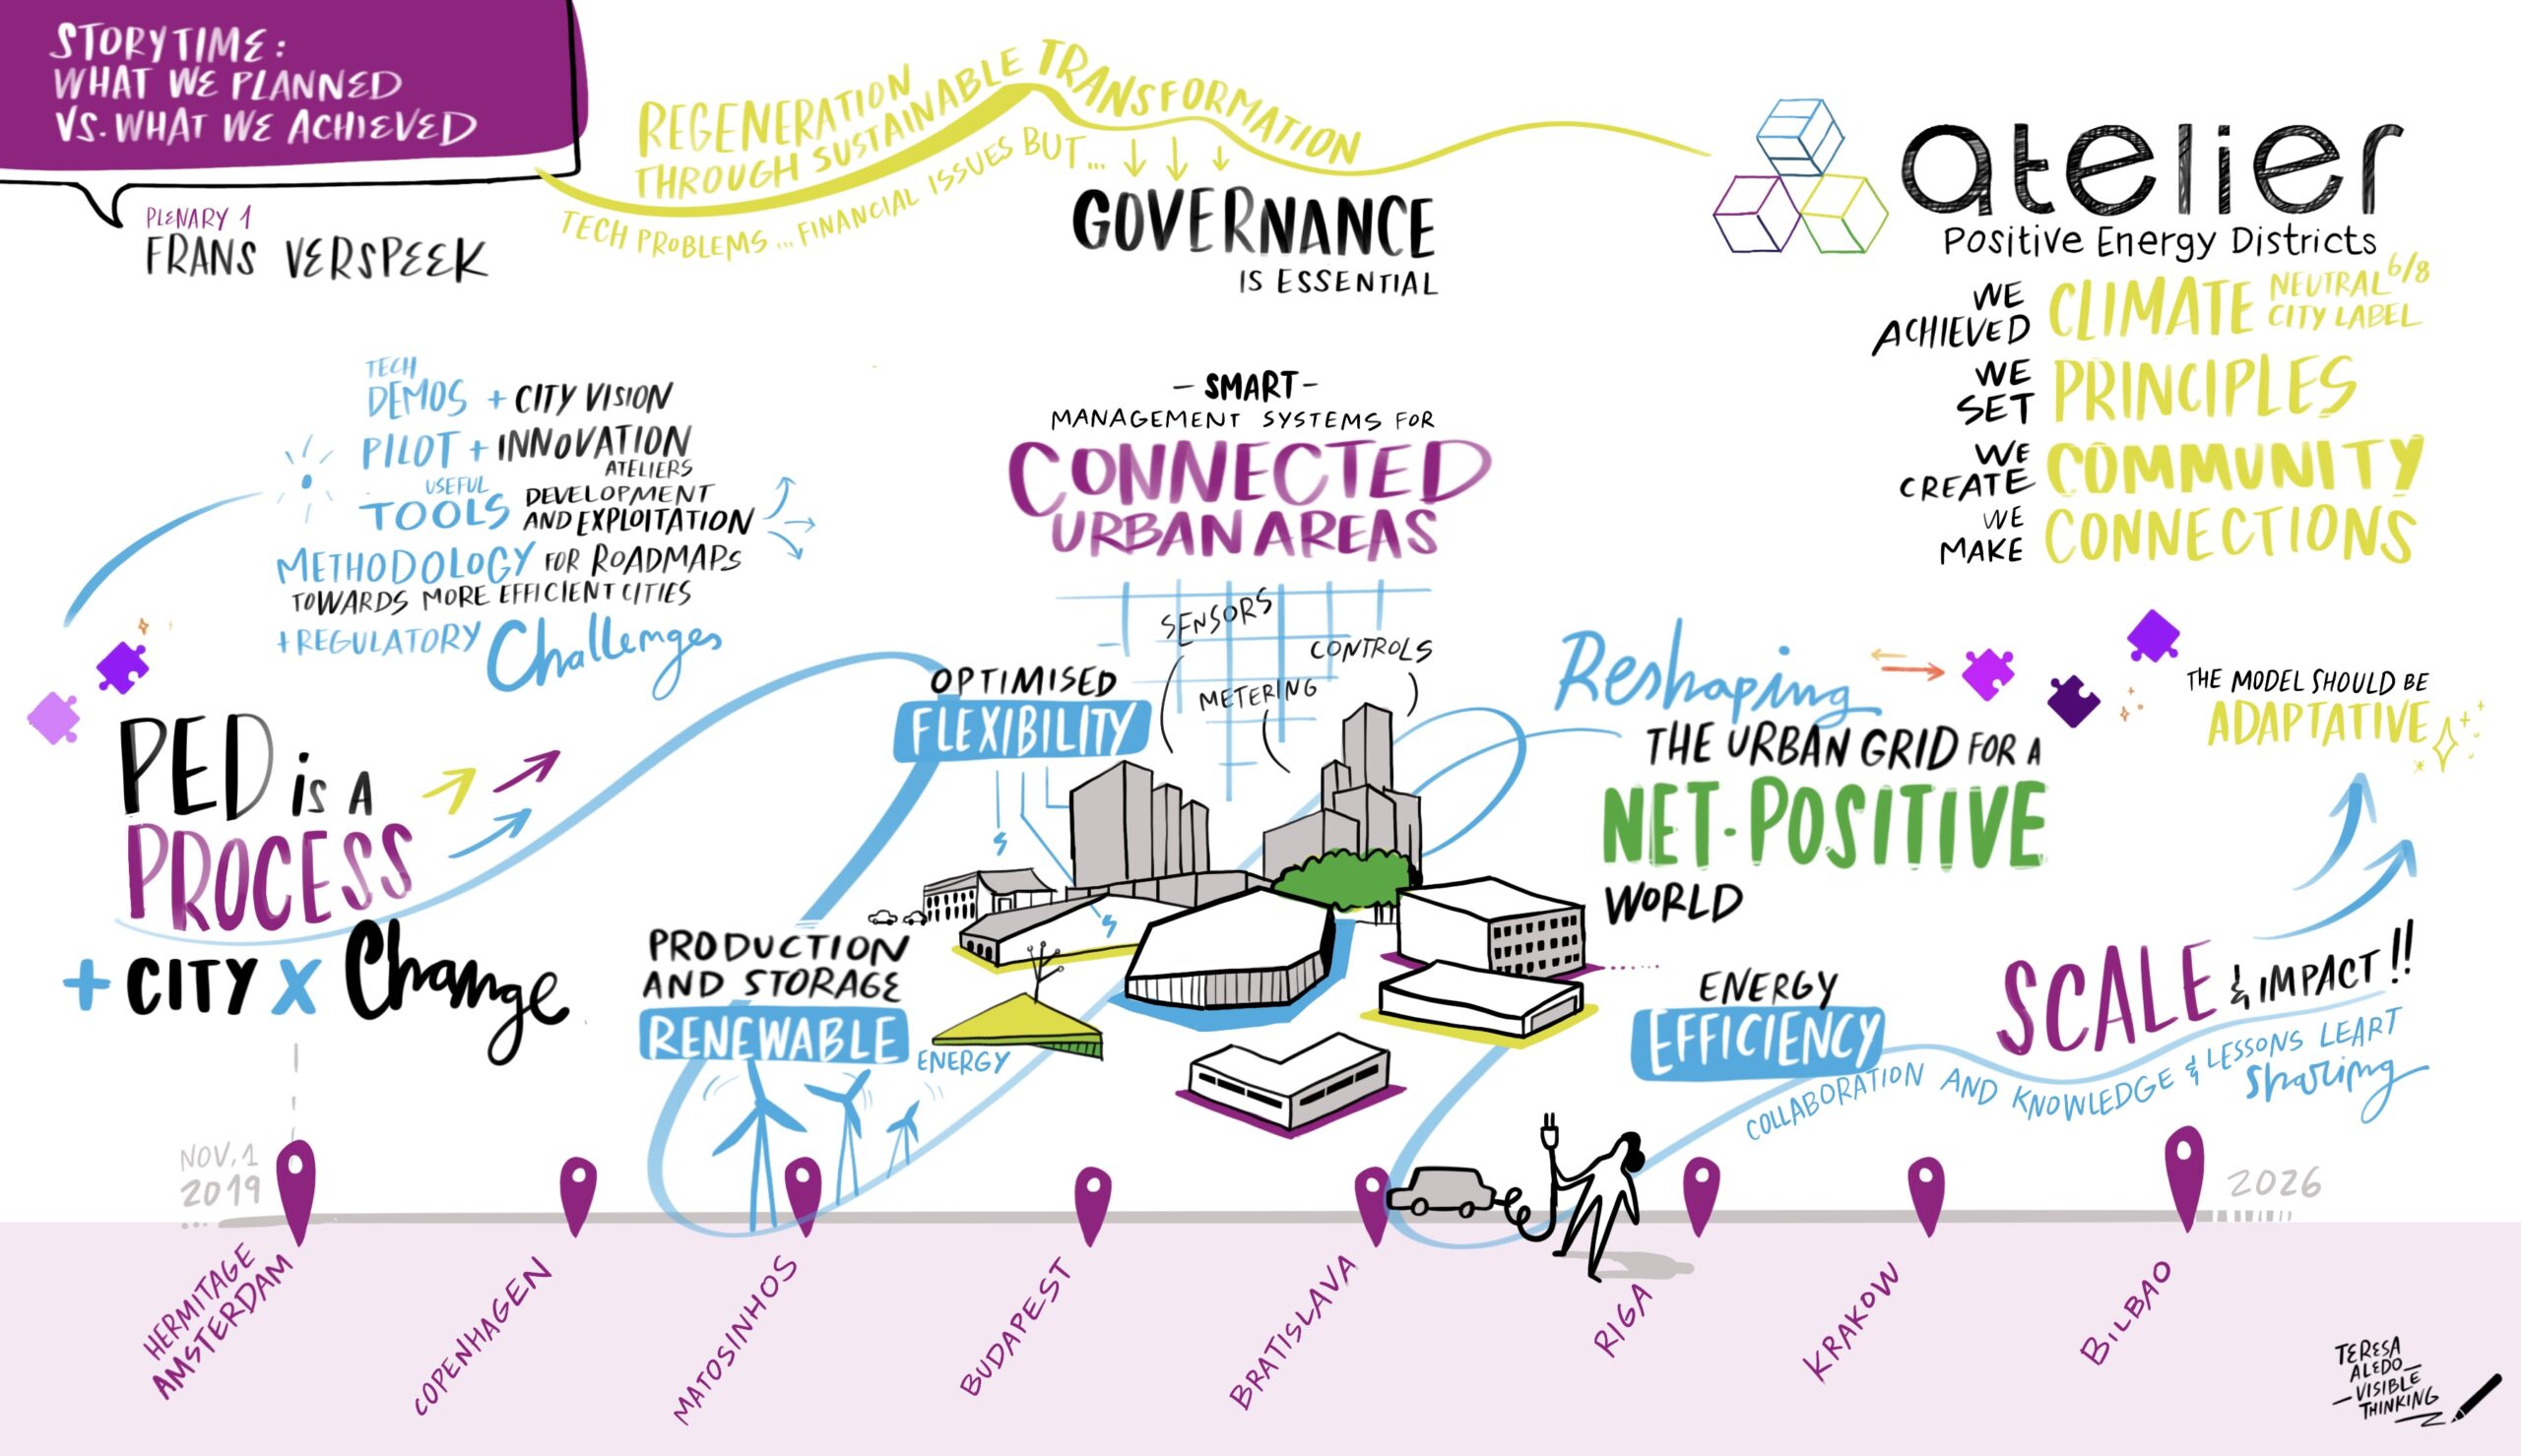 STORYTIME:
WHAT WE PLANNED
VS. WHAT WE ACHIEVED
PLENARY 1
FRANS VERSPEEK
REGENERATION
THROUGH SUSTAINABLE TRANSFORMATION
TECH PROBLEMS... FINANCIAL ISSUES BUT...
GOVERNANCE
IS ESSENTIAL
atelier
Positive Energy Districts
WE ACHIEVED CLIMATE NEUTRAL 6/8
CITY LABEL
WE SET PRINCIPLES
WE CREATE COMMUNITY
WE MAKE CONNECTIONS
TECH
DEMOS + CITY VISION
PILOT + INNOVATION
ATELIERS
USEFUL
TOOLS DEVELOPMENT
AND EXPLOITATION
METHODOLOGY FOR ROADMAPS
TOWARDS MORE EFFICIENT CITIES
+ REGULATORY Challenges
- SMART -
MANAGEMENT SYSTEMS FOR
CONNECTED
URBAN AREAS
SENSORS
CONTROLS
METERING
OPTIMISED
FLEXIBILITY
PED is A
PROCESS
+ CITY X Change
PRODUCTION
AND STORAGE
RENEWABLE
ENERGY
Reshaping
THE URBAN GRID FOR A
NET-POSITIVE
WORLD
THE MODEL SHOULD BE
ADAPTATIVE
ENERGY
EFFICIENCY
SCALE & IMPACT!!
COLLABORATION AND KNOWLEDGE & LESSONS LEART
sharing
NOV. 1
2019
2026
HERMITAGE
AMSTERDAM
COPENHAGEN
MATOSINHOS
BUDAPEST
BRATISLAVA
RIGA
KRAKOW
BILBAO
TERESA
ALEDO
VISIBLE
THINKING